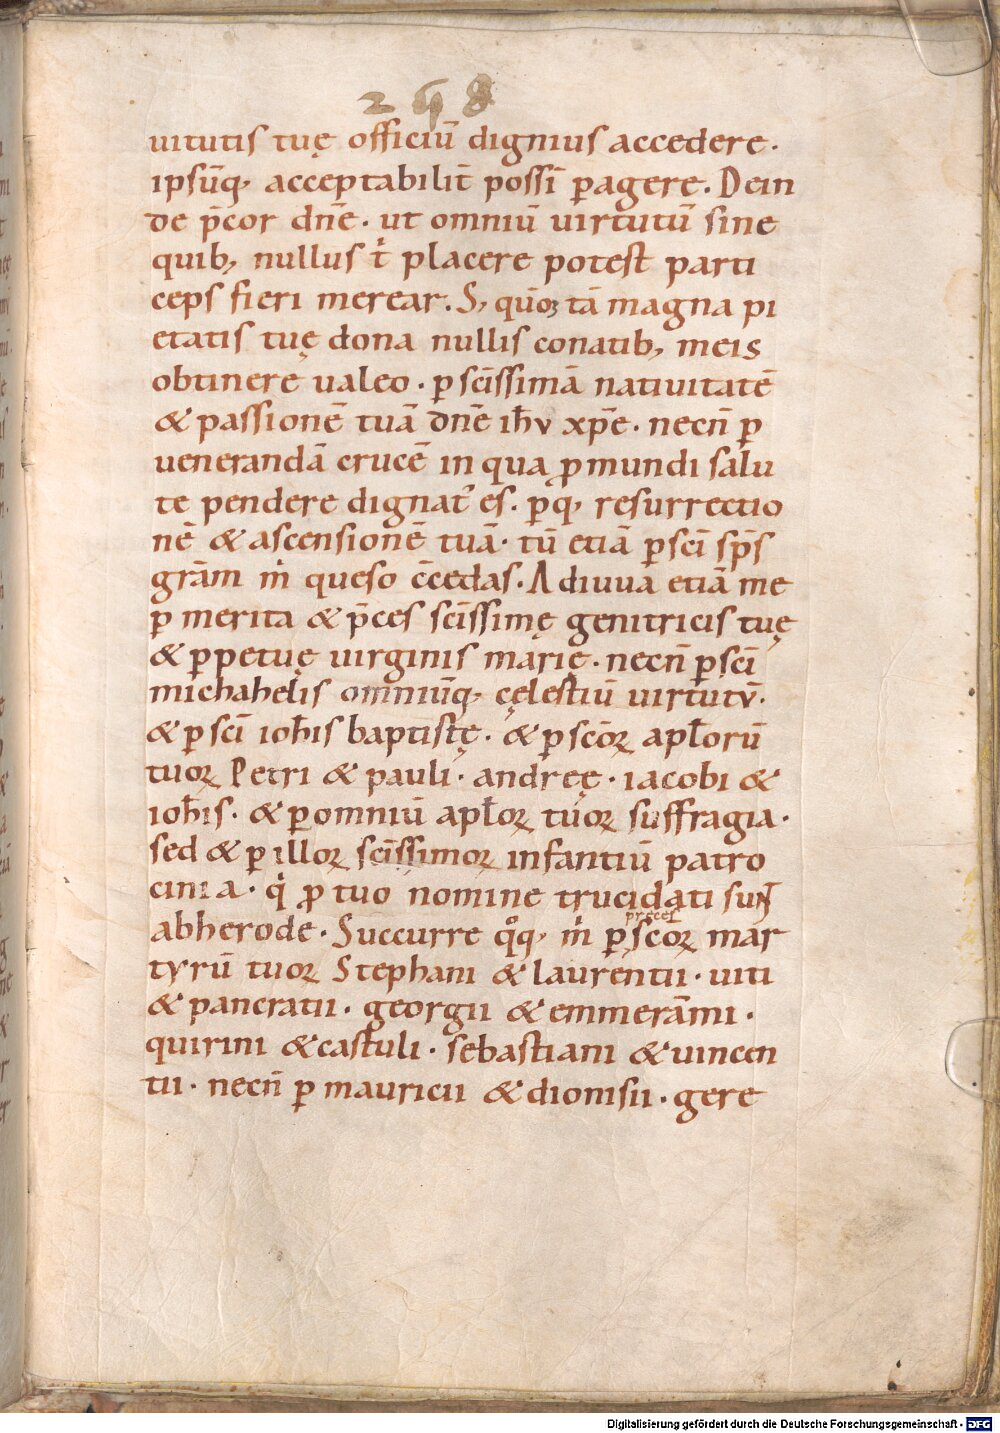 248
uitutis tuę officiū dignius accedere·
ipsūq; acceptabilit̄ possī ꝑagere. Dein
de p̄cor dn̄e· ut omniū uirtutū sine
quib; nullus t̉ placere potest parti
ceps fieri merear. S; qūoꝝ tā magna pi
etatis tuę dona nullis conatib; meis
obtinere ualeo· ꝑ scīssimā natiuitatē
& passionē tuā dn̄e ih̄v xp̄e· necn̄ ꝑ
uenerandā crucē in qua ꝓ mundi salu
te pendere dignat᾽ es̄. ꝑq; resurrectio
nē & ascensionē tuā· tū etiā ꝑ scī sp̄s
grām m̉ queso c̄cedas. Adiuua etiā me
ꝑ merita & p̄ces scīssimę genitricis tuę
& ꝑpetuę uirginis marię· necn̄ ꝑ scī
michahelis omniūq; cęlestiū uirtutv̄·
& ꝑ scī ioh̄is baptistę· & ꝑ scōꝝ apl̄orū
tuoꝝ Petri & pauli· andreę· iacobi &
ioh̄is· & ꝑ omniū apl̄oꝝ tuoꝝ suffragia·
sed & ꝑ illoꝝ scīssimoꝝ infantiū patro
cinia· q̉ ꝓ tuo nomine trucidati sunt̄
abherode· Succurre qͦq; m̉ ꝑ preces scōꝝ mar
tyrū tuoꝝ Stephani & laurentii· uiti
& pancratii· georgii & emmerāmi·
quirini & castuli· sebastiani & uincen
tii· necn̄ ꝑ mauricii & dionisii· gere
Digitalisierung gefördert durch die Deutsche Forschungsgemeinschaft - DFG